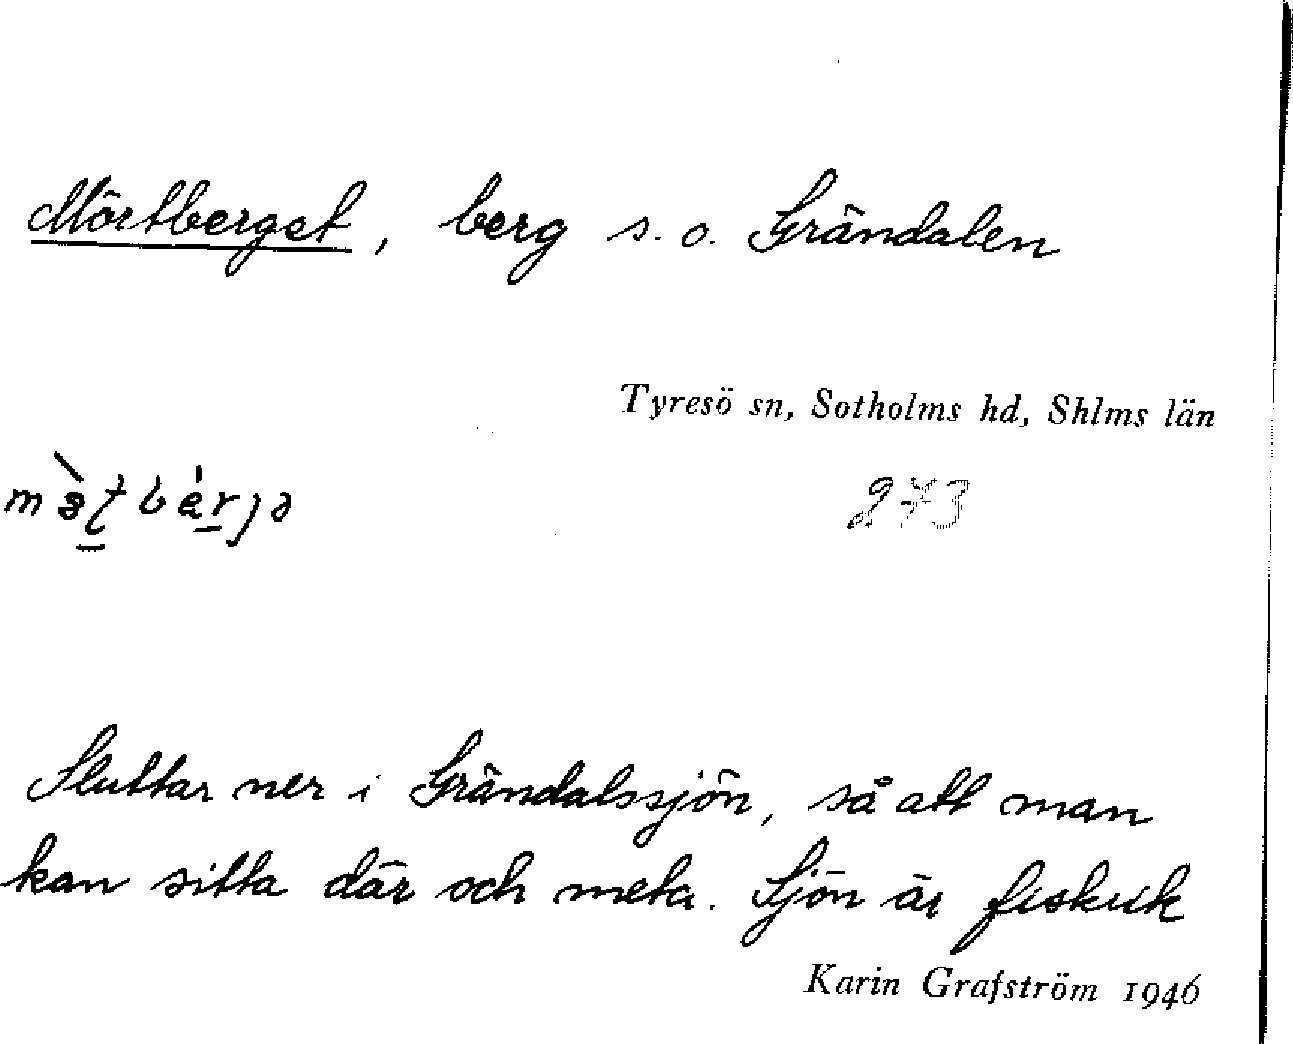 Mörtberget, berg s.o. Grändalen
Tyresö sn, Sotholms hd, Shlms län
273
Sluttar ner i Grändalssjön, så att man
kan sitta där och meta. Sjön är fiskrik
Karin Grafström 1946